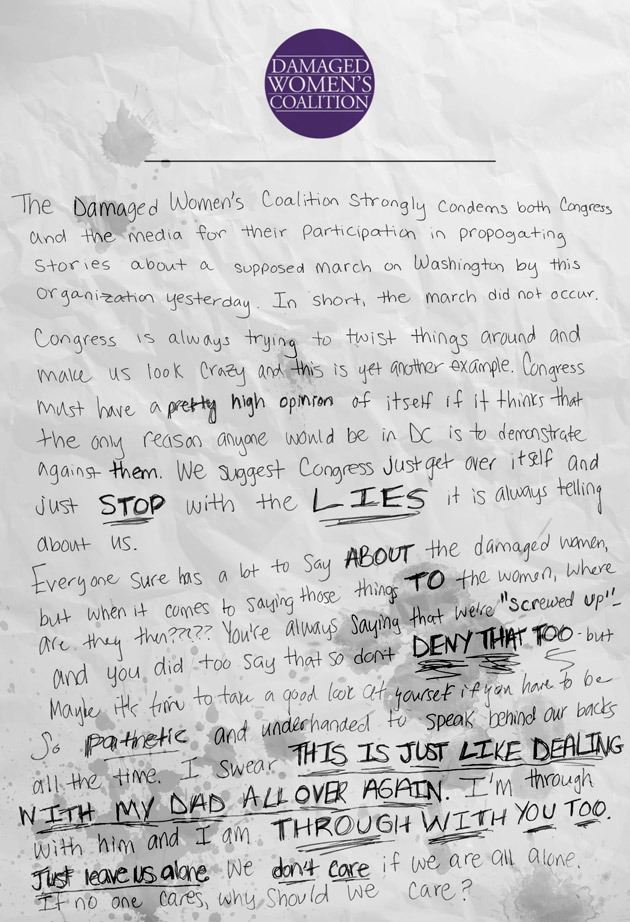 DAMAGED
WOMEN'S
COALITION
The Damaged Women's Coalition Strongly Condems both Congress
and the media for their Participation in propogating
Stories about a supposed march on Washington by this
organization yesterday. In short, the march did not occur.
Congress is always trying to twist things around and
make us look crazy and this is yet another example. Congress
must have a pretty high opinion of itself if it thinks that
the only reason anyone would be in DC is to demonstrate
against them. We suggest Congress Just get over itself and
just STOP with the LIES it is always telling
about us.
Everyone sure has a lot to say ABOUT the damaged women,
but when it comes to saying those things TO the women, where
are they then????? You're always saying that we're "screwed up"-
and you did too say that so don't DENY THAT TOO - but
Maybe it's time to take a good look at yourself if you have to be
So Pathetic and underhanded to speak behind our backs
all the time. I swear THIS IS JUST LIKE DEALING
WITH MY DAD ALL OVER AGAIN. I'm through
with him and I am THROUGH WITH YOU TOO.
Just leave us alone. We don't care if we are all alone.
If no one cares, why should we care?